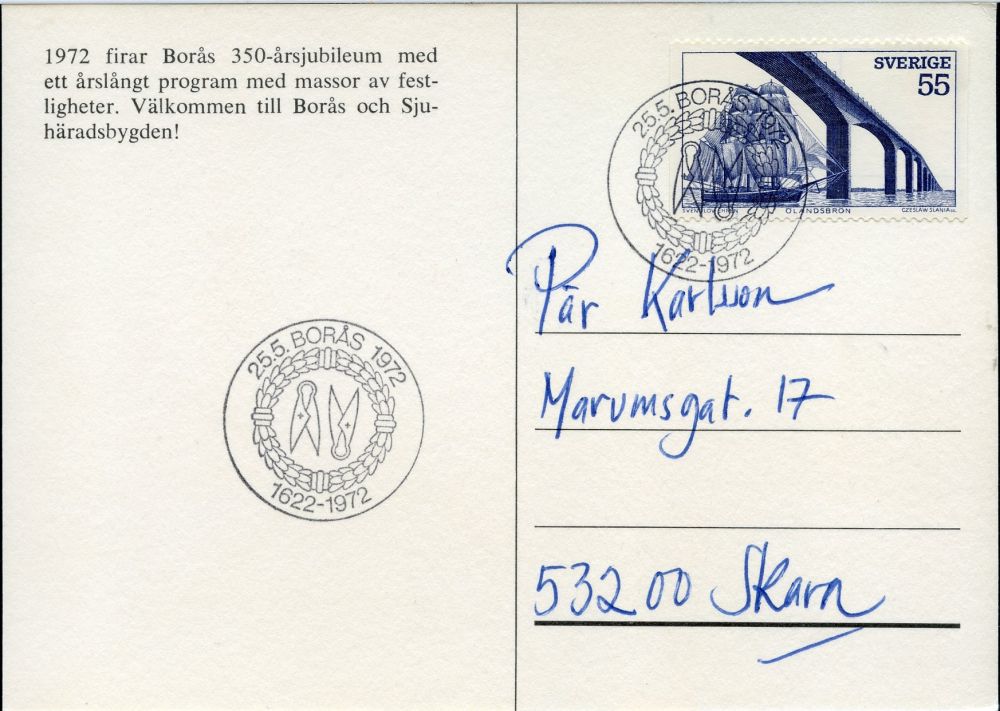 1972 firar Borås 350-årsjubileum med
ett årslångt program med massor av fest-
ligheter. Välkommen till Borås och Sju-
häradsbygden!
25.5. BORÅS 1972
1622-1972
SVERIGE
55
ÖLANDSBRON
CZESLAW SLANIA sc.
25.5. BORÅS 1972
1622-1972
Pär Karlsson
Marumsgat. 17
532 00 Skara